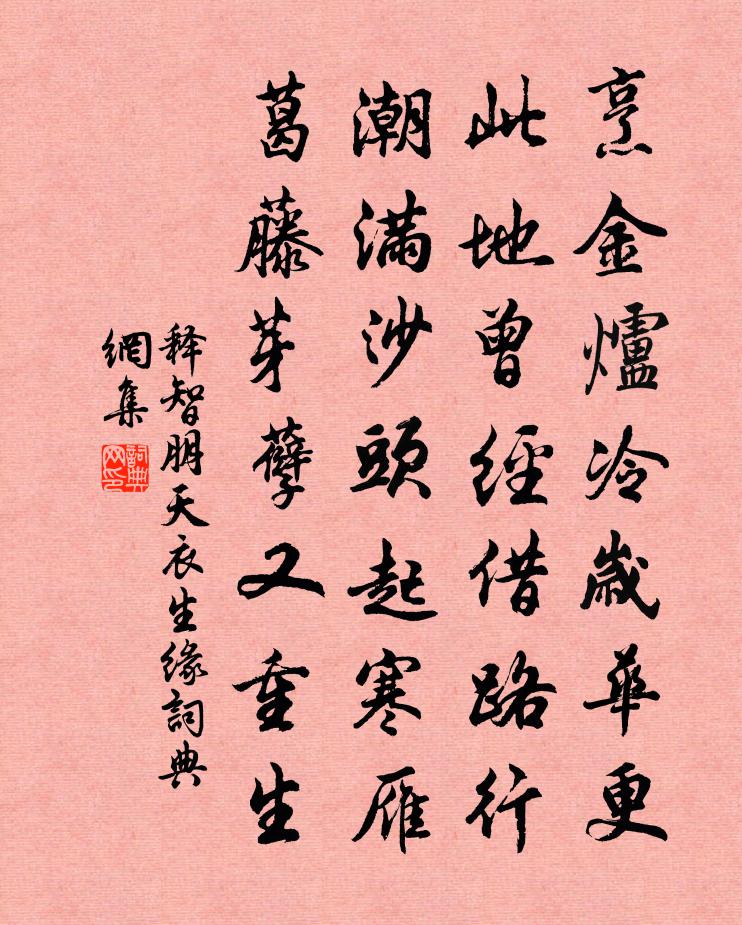 烹金爐冷歲華更
此地曾經借路行
潮滿沙頭起寒雁
葛藤芽孽又重生
释智朋天衣生缘詞典
網集
詞典
网印